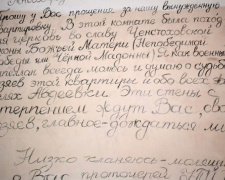 прошу у Вас прощения за нашу вынужденную
квартировку. В этой комнате была поход
церковь во славу Ченстоховской
коны Божьей Матери (Непобедимая
победы или Черной Мадонны) Как военный
капеллан всегда молюсь и думаю о судьбе
хозяев этой квартиры и обо всех
лях Авдеевки. Эти стены с
терпением ждут Вас, сво
зяев, главное - дождаться ми
Низко кланяюсь - молящ
о Вас протоиерей